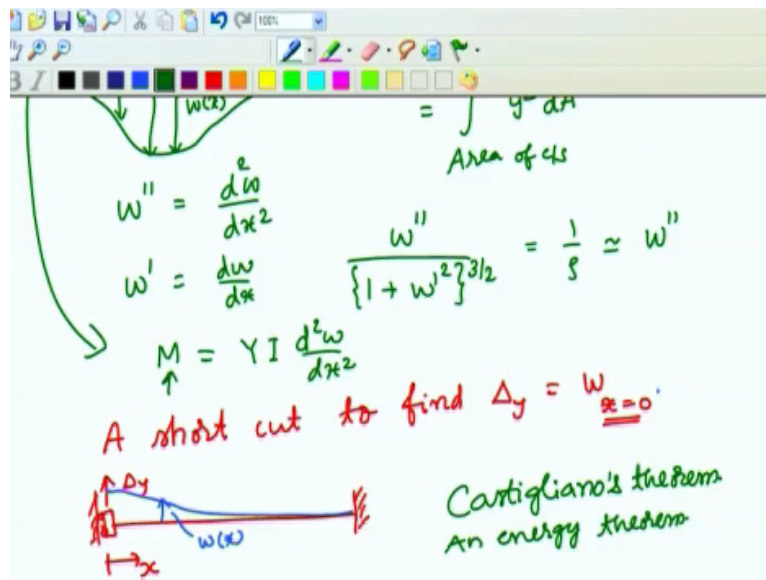 100%
B I
w(x)
= ∫ y² dA
Area of c/s
w'' = d²w/dx²
w' = dw/dx
w''/{1 + w'²}^3/2 = 1/ρ ≃ w''
M = Y I d²w/dx²
A short cut to find Δy = w x=0
Δy
w(x)
x
Castigliano's theorem
An energy theorem